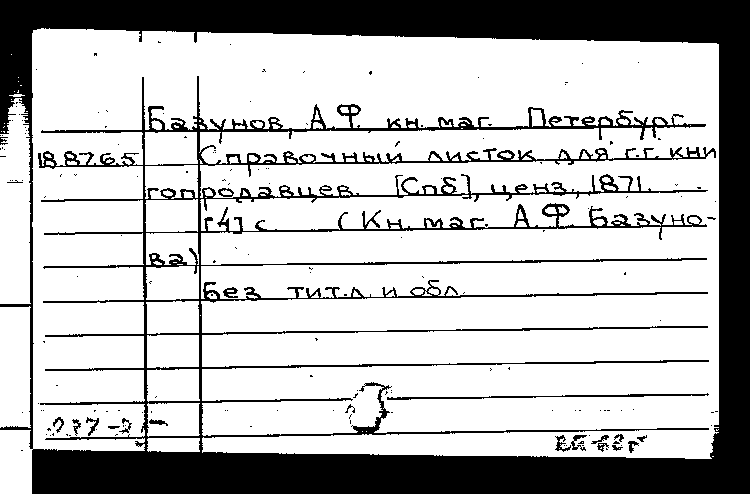 Базунов, А.Ф. кн. маг. Петербург
18.87.6.5 Справочный листок для г.г. кни
гопродавцев. [Спб], ценз., 1871.
[4] с (Кн. маг. А.Ф. Базуно-
ва).
Без тит.л. и обл.